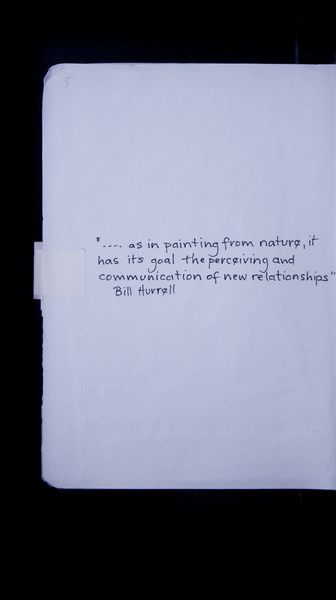 5
"---- as in painting from nature, it
has its goal the perceiving and
communication of new relationships"
Bill Hurrell